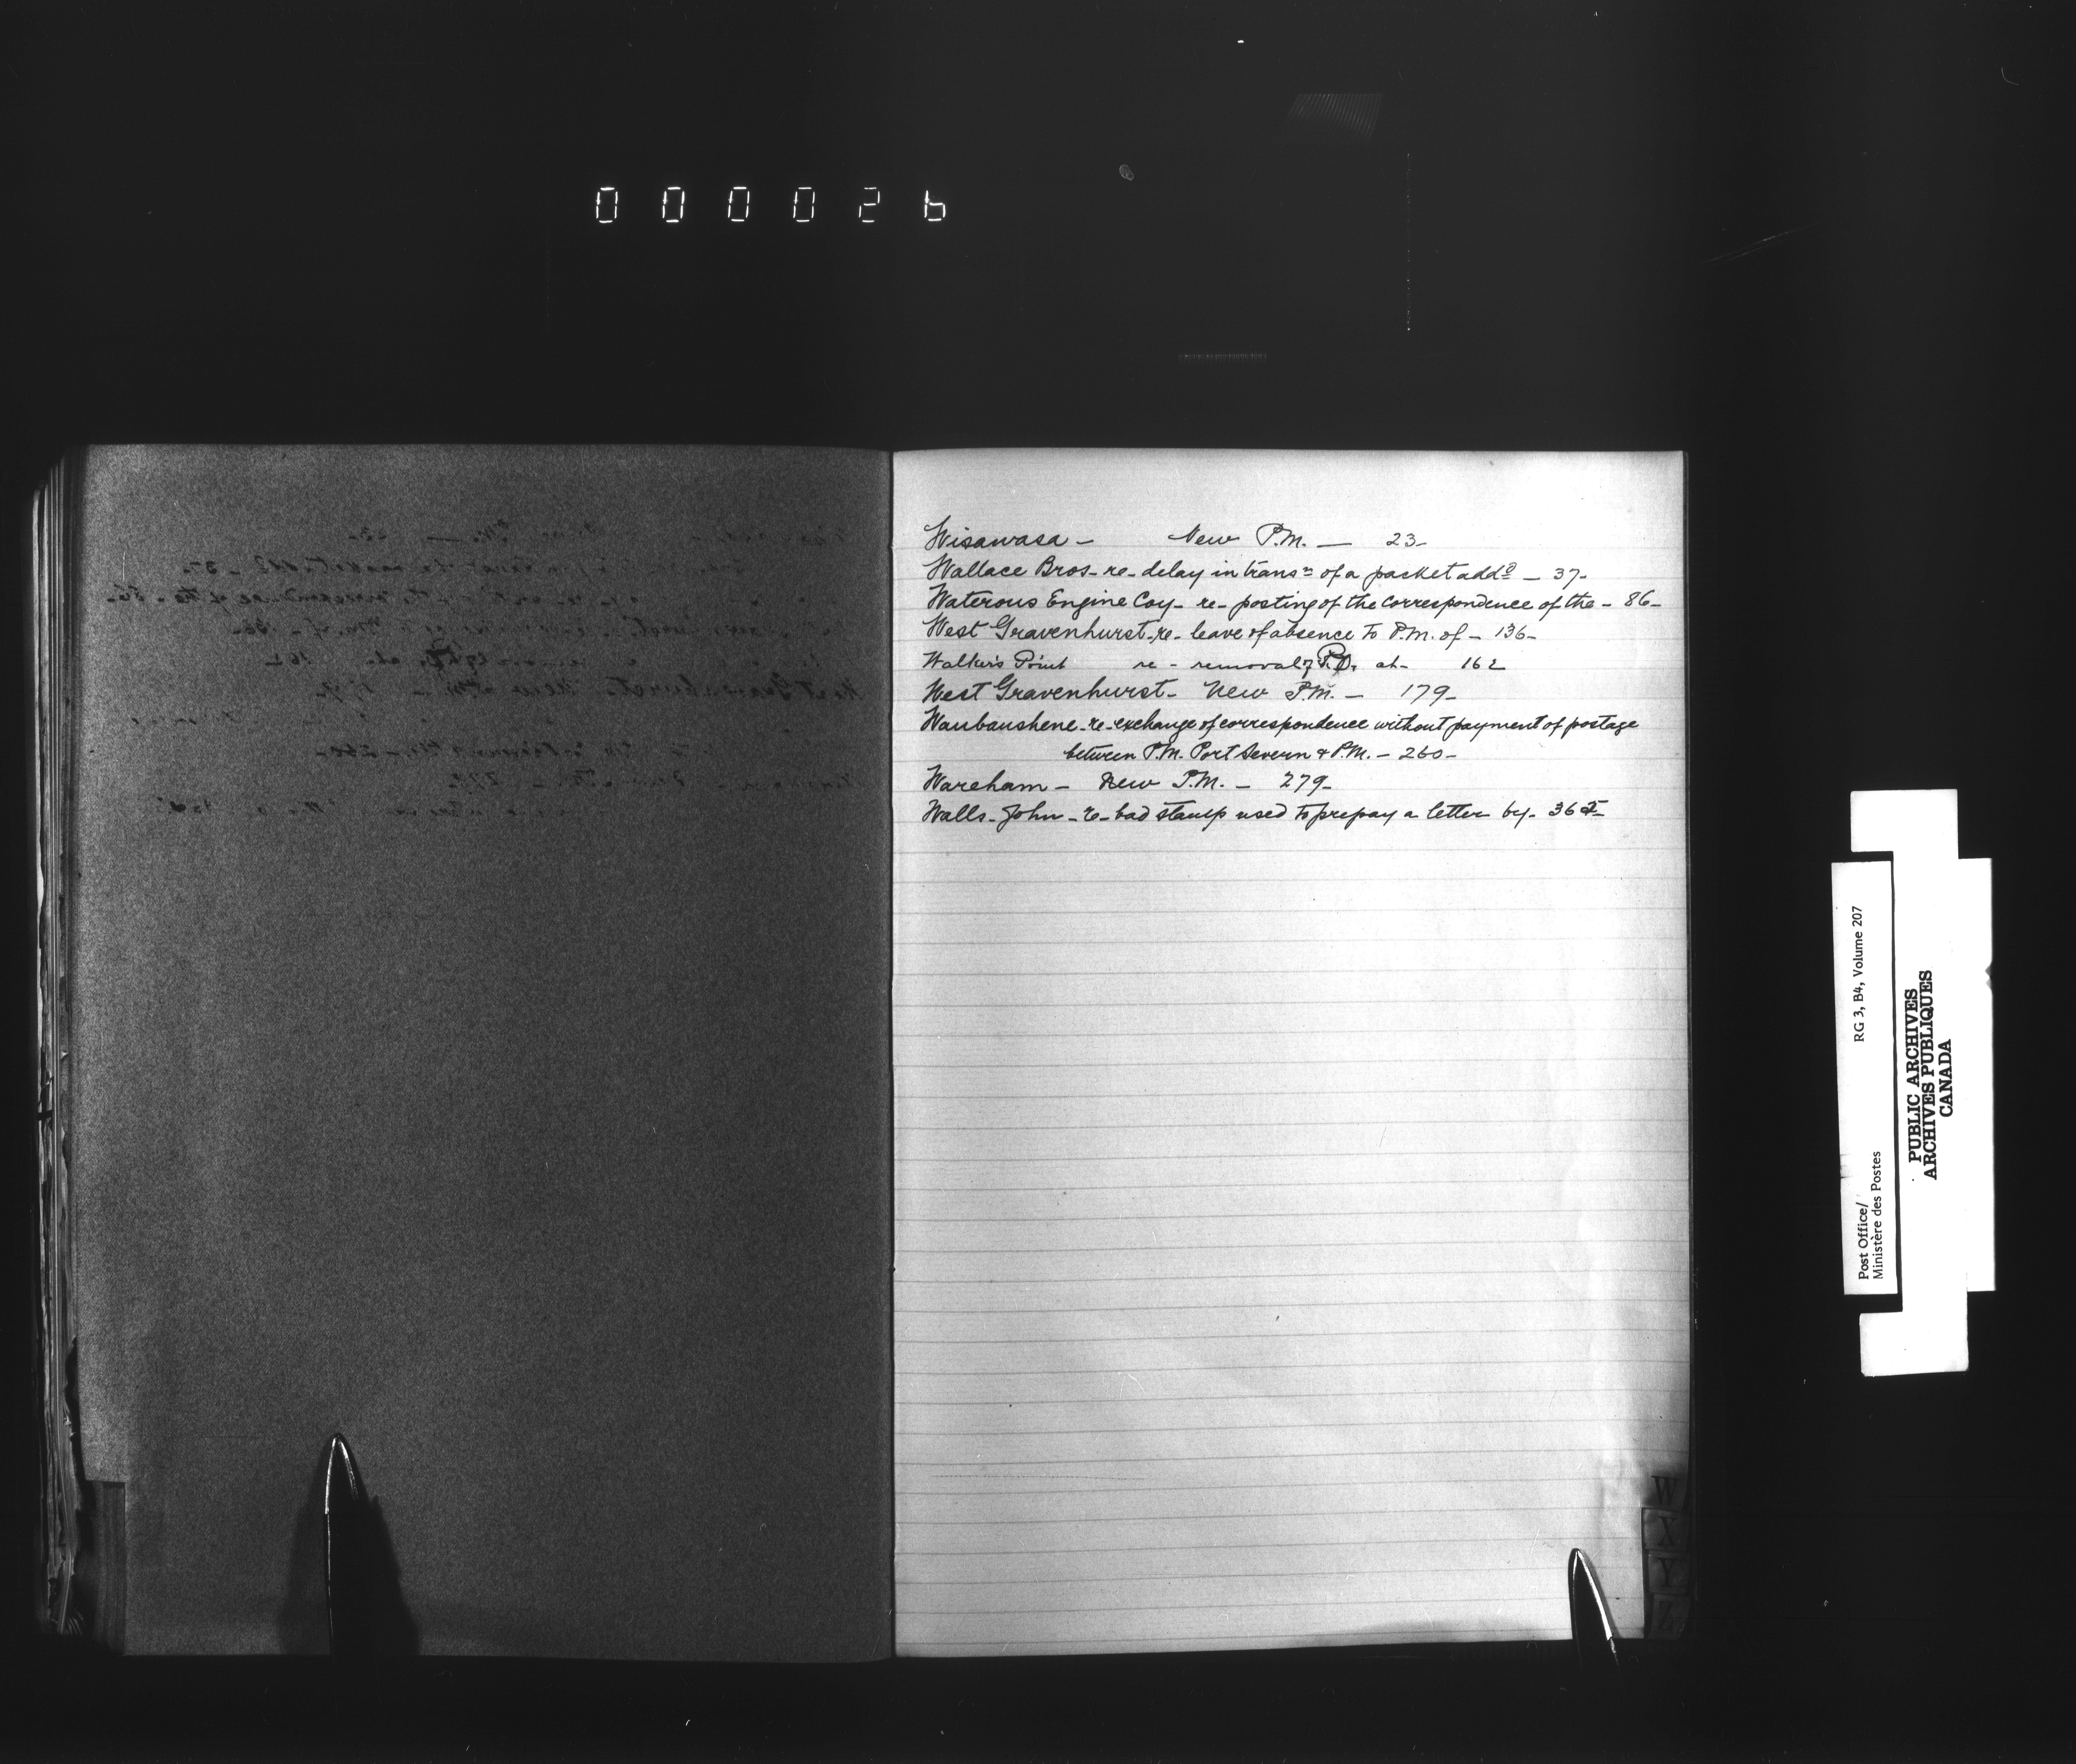 000026
Wisawasa - New P.M. — 23-
Wallace Bros - re - delay in transn of a packet addd - 37-
Waterous Engine Coy - re - posting of the correspondence of the - 86-
West Gravenhurst - re - leave of absence to P.M. of - 136-
Walker's Point re - removal of P.O. at - 162
West Gravenhurst - New P.M. - 179-
Waubaushene - re - exchange of correspondence without payment of postage
between P.M. Port Severn & P.M. - 260-
Wareham - New P.M. - 279-
Walls - John - re - bad stamp used to prepay a letter by - 365-
W
X
Y
Z
Post Office/ RG 3, B4, Volume 207
Ministère des Postes
PUBLIC ARCHIVES
ARCHIVES PUBLIQUES
CANADA